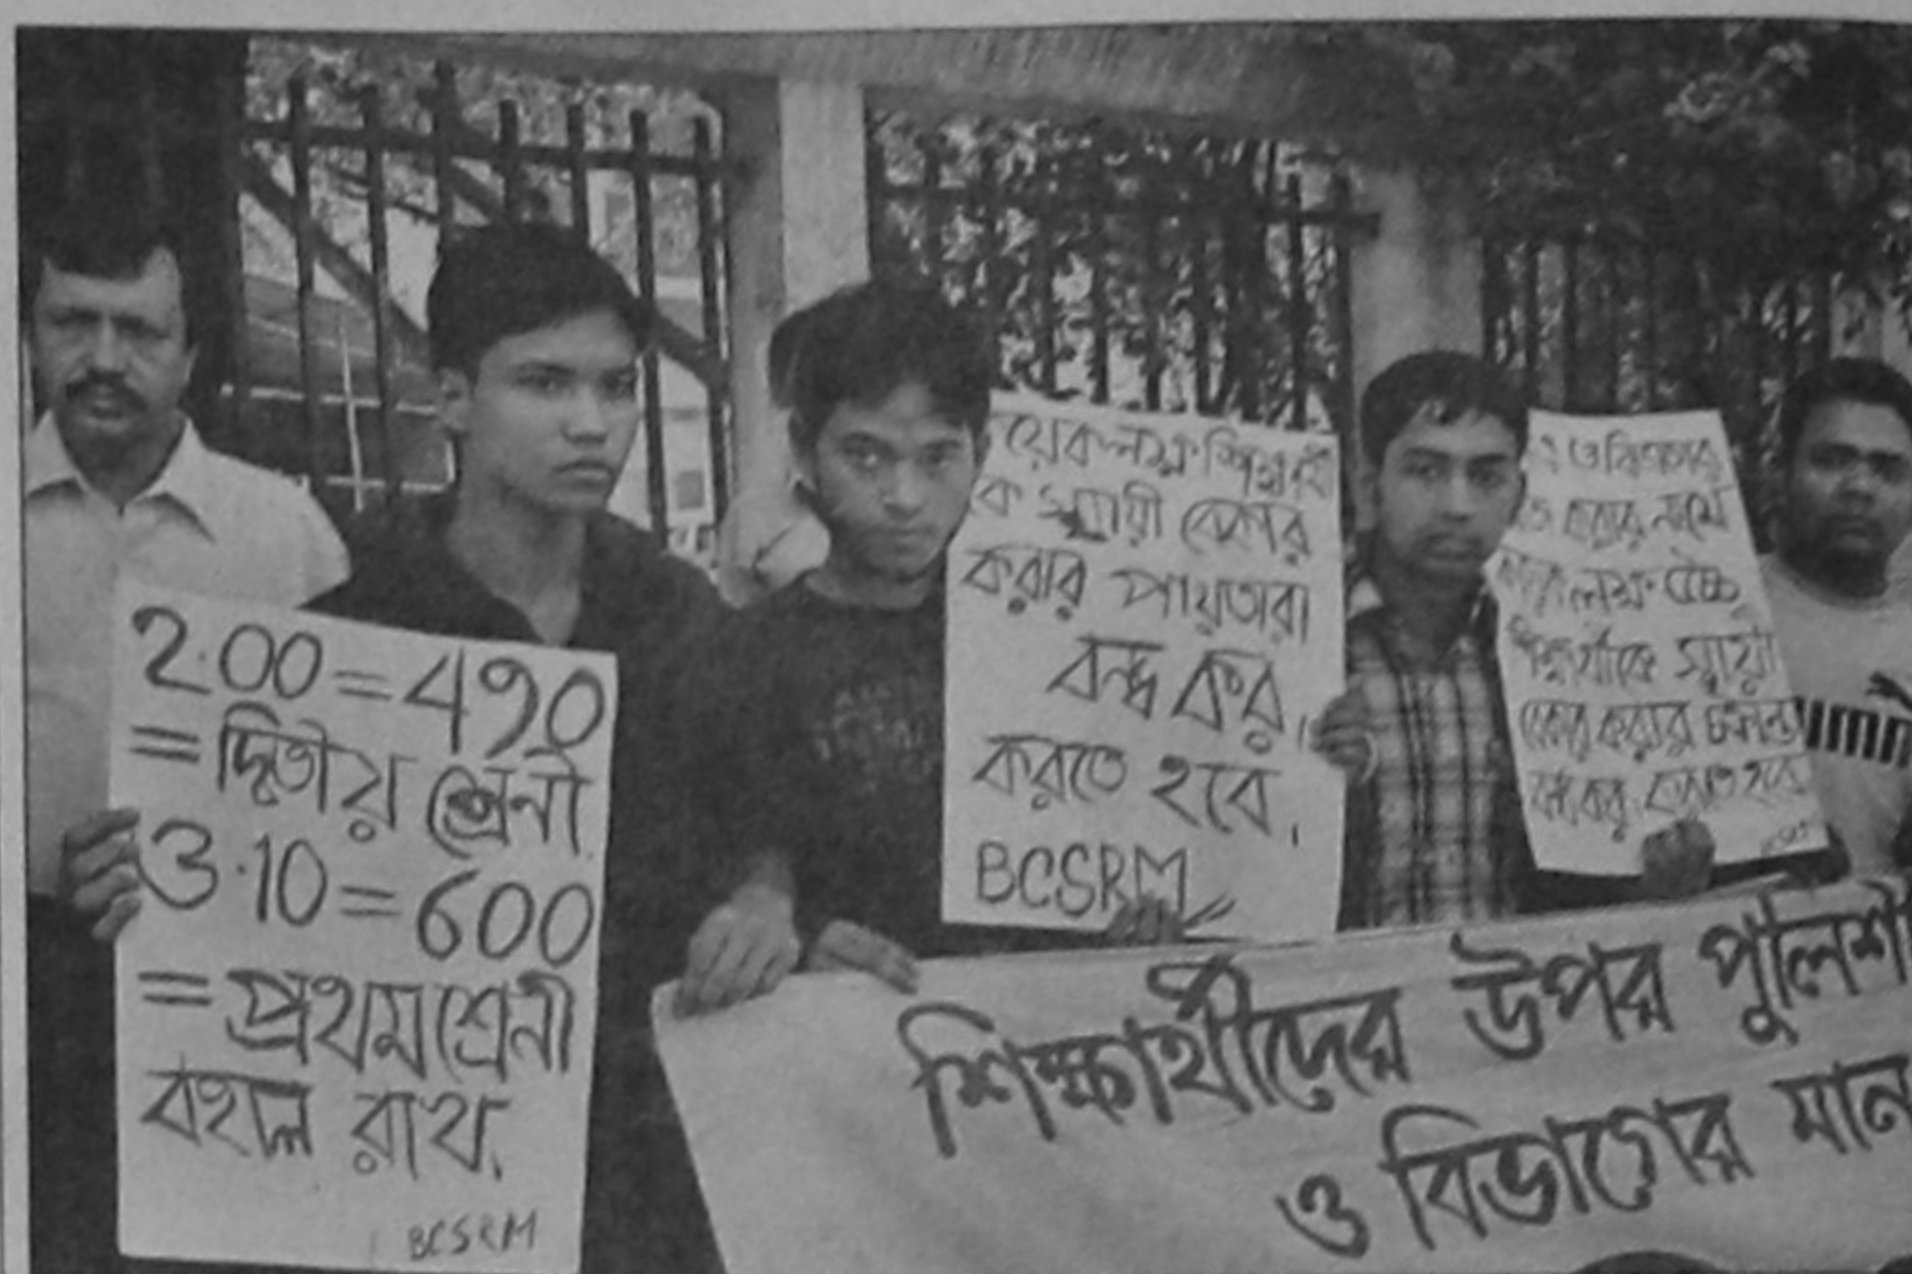 2.00=490
= দ্বিতীয় শ্রেনী
3.10=600
= প্রথম শ্রেনী
বহাল রাখ.
BCSRM
য়েক লক্ষ শিক্ষার্থী
কে স্থায়ী বেকার
করার পায়তারা
বন্ধ কর,
করতে হবে.
BCSRM
ও বিভাগের
করার নামে
লক্ষ
স্থায়ী
বেকার করার চক্রান্ত
বন্ধ কর, করতে হবে
শিক্ষার্থীদের উপর পুলিশ
ও বিভাগের মান